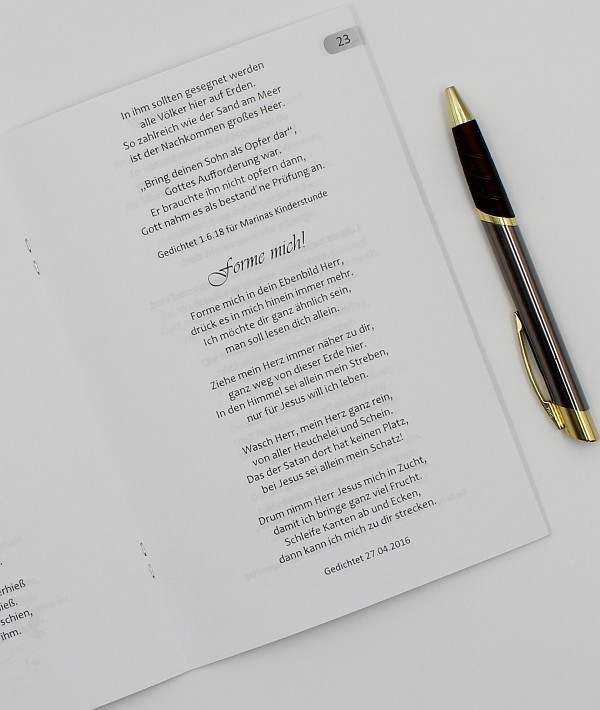 23
In ihm sollten gesegnet werden
alle Völker hier auf Erden.
So zahlreich wie der Sand am Meer
ist der Nachkommen großes Heer.
„Bring deinen Sohn als Opfer dar“,
Gottes Aufforderung war.
Er brauchte ihn nicht opfern dann,
Gott nahm es als bestand´ne Prüfung an.
Gedichtet 1.6.18 für Marinas Kinderstunde
Forme mich!
Forme mich in dein Ebenbild Herr,
drück es in mich hinein immer mehr.
Ich möchte dir ganz ähnlich sein,
man soll lesen dich allein.
Ziehe mein Herz immer näher zu dir,
ganz weg von dieser Erde hier.
In den Himmel sei allein mein Streben,
nur für Jesus will ich leben.
Wasch Herr, mein Herz ganz rein,
von aller Heuchelei und Schein.
Das der Satan dort hat keinen Platz,
bei Jesus sei allein mein Schatz!
Drum nimm Herr Jesus mich in Zucht,
damit ich bringe ganz viel Frucht.
Schleife Kanten ab und Ecken,
dann kann ich mich zu dir strecken.
Gedichtet 27.04.2016
erhieß
ieß.
schien,
ihm.